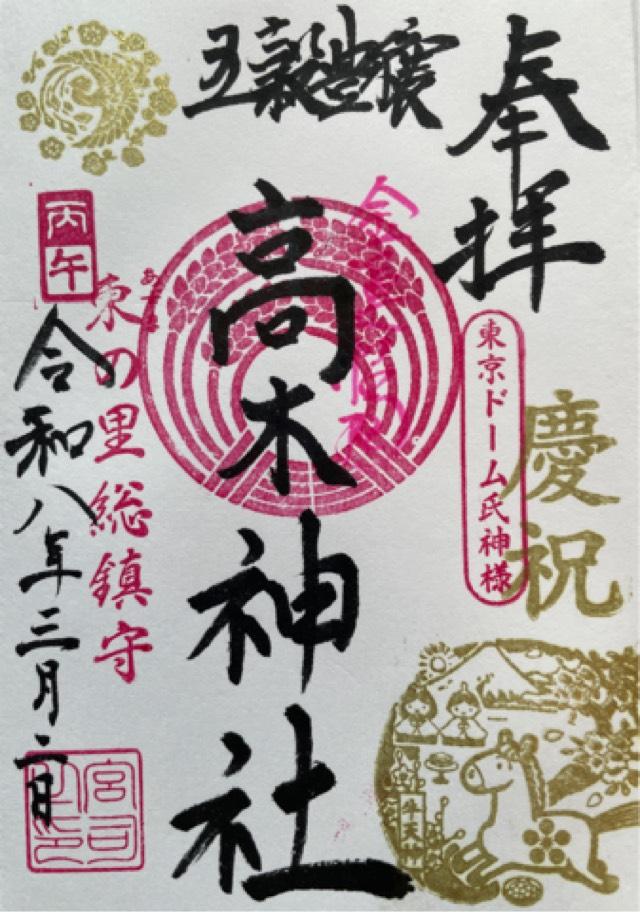 奉拝
慶祝
東京ドーム氏神様
五穀豊穣
高木神社
東の里総鎮守
あずま
丙午
令和八年三月二日
宮司之印
牛天神